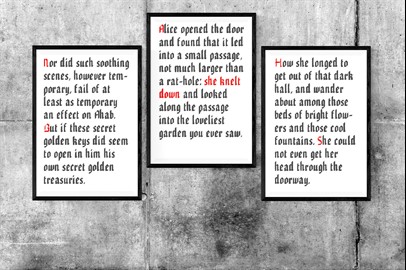 Nor did such soothing
scenes, however tem-
porary, fail of at
least as temporary
an effect on Ahab.
But if these secret
golden keys did seem
to open in him his
own secret golden
treasuries.
Alice opened the door
and found that it led
into a small passage,
not much larger than
a rat-hole: she knelt
down and looked
along the passage
into the loveliest
garden you ever saw.
How she longed to
get out of that dark
hall, and wander
about among those
beds of bright flow-
ers and those cool
fountains. She could
not even get her
head through the
doorway.